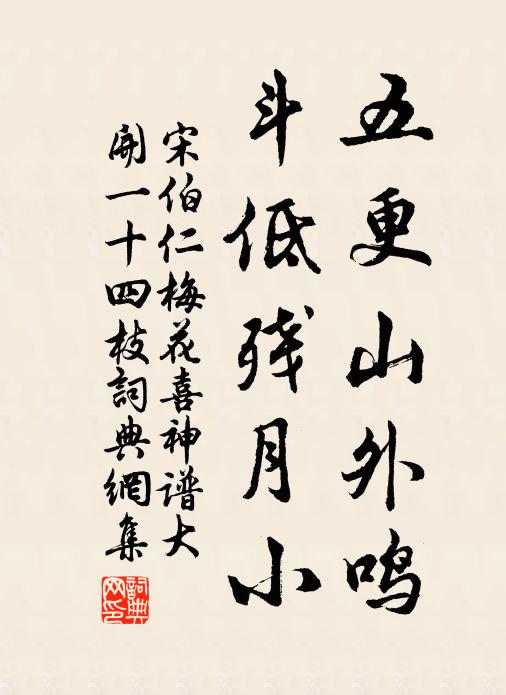 五更山外鸣
斗低残月小
宋伯仁梅花喜神谱大
開一十四枝詞典網集
詞典網印